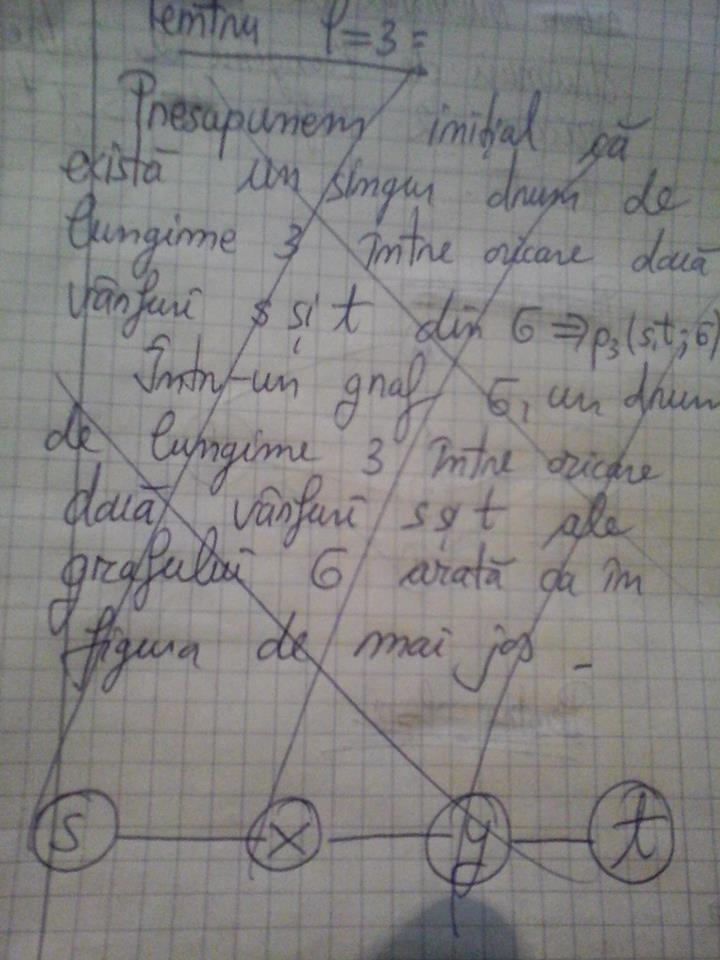 Pentru l=3:
Presupunem inițial că
există un singur drum de
lungime 3 între oricare două
vârfuri s și t din G ⇒ p₃(s,t;G)
Într-un graf G, un drum
de lungime 3 între oricare
două vârfuri s și t ale
grafului G arată ca în
figura de mai jos
s x y t